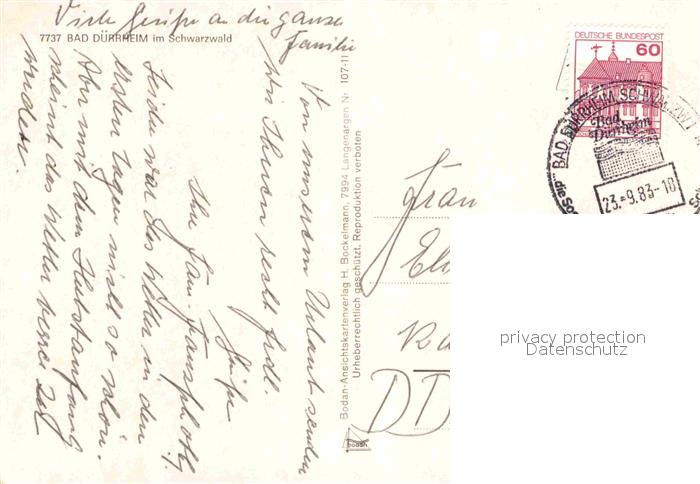 Viele Grüße an die ganze
Familie
7737 BAD DÜRRHEIM im Schwarzwald
Von unserem Urlaub senden
wir Ihnen recht herzl.
Grüße
Ihre Fam.
Leider war das Wetter in den
ersten Tagen nicht so schön.
Aber mit dem Herbstanfang
scheint das Wetter besser zu
werden.
Bodan-Ansichtskartenverlag H. Bockelmann, 7994 Langenargen Nr. 107-11
Urheberrechtlich geschützt. Reproduktion verboten
bodan
DEUTSCHE BUNDESPOST
60
BAD DÜRRHEIM SCHWARZW
Bad
Dürrheim
23.-9.83-18
Frau
DD
privacy protection
Datenschutz